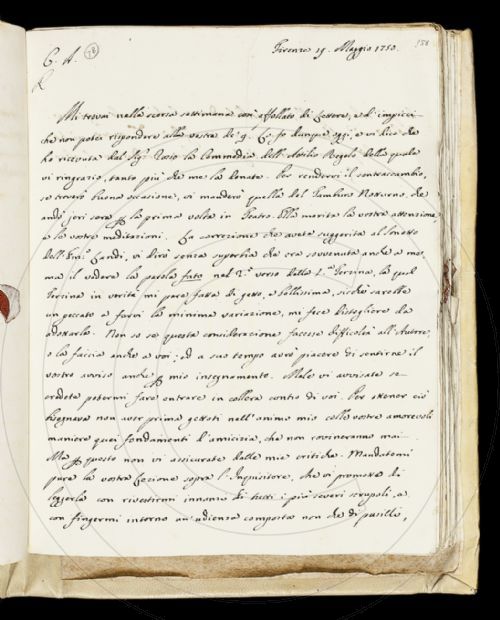 C. A. 78
Firenze 19. Maggio 1750. 158
R
Mi trovai nella scorsa settimana così affollato di lettere, e d'impicci
che non potei rispondere alla vostra de' 9. Lo fo dunque oggi, e vi dico che
ho ricevuta dal Sigr. la Commedia dell'Attilio Regolo della quale
vi ringrazio, tanto più che me la donate. Per rendervi il contraccambio,
se troverò buona occasione, vi manderò quella del Tamburo Notturno, che
andò jeri sera per la prima volta in Teatro. Ella merita la vostra attenzione,
e le vostre meditazioni. La correzione che avete suggerita al Sonetto
dell' Landi, vi dirò senza superbia che era sovvenuta anche a me,
ma il vedere la parola fato nel 2.° verso della 1.a Terzina, la qual
Terzina in verità mi pare fatta di getto, e bellissima, sicchè sarebbe
un peccato a farvi la minima variazione, mi fece distogliere da
adottarla. Non so se questa considerazione facesse difficoltà all'Autore,
o la faccia anche a voi; ed a suo tempo avrò piacere di sentirne il
vostro avviso anche per mio insegnamento. Male vi avvisate se
credete potermi fare entrare in collera contro di voi. Per ottener ciò
bisognava non aver prima gettati nell'animo mio colle vostre amorevoli
maniere quei fondamenti d'amicizia, che non rovineranno mai.
Ma per questo non vi assicurate dalle mie critiche. Mandatemi
pure la vostra Lezione sopra l'Inquisitore, che vi prometto di
leggerla con rivestirmi innanzi di tutti i più severi scrupoli, e
con fingermi intorno un'udienza composta non che di pusilli,